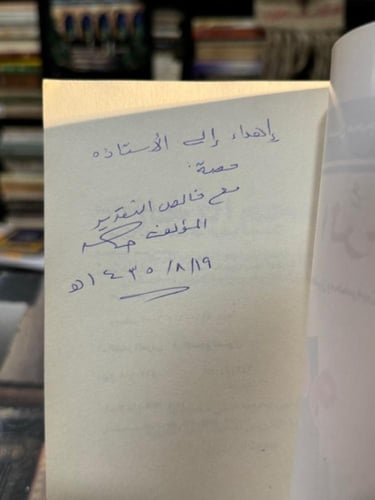 إهداء إلى الأستاذه
حصة:
مع خالص التقدير
المؤلف
١٤٣٥/٨/١٩هـ